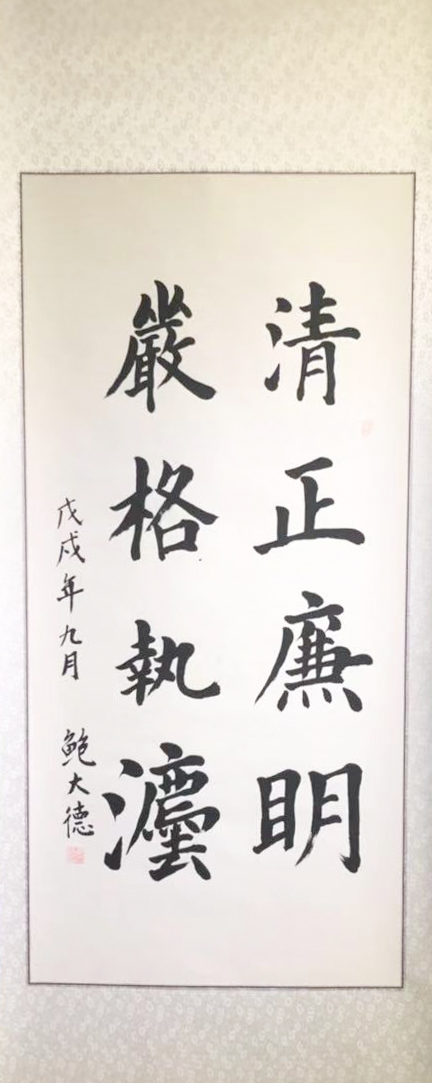 清正廉明
嚴格執灋
戊戌年九月 鮑大德